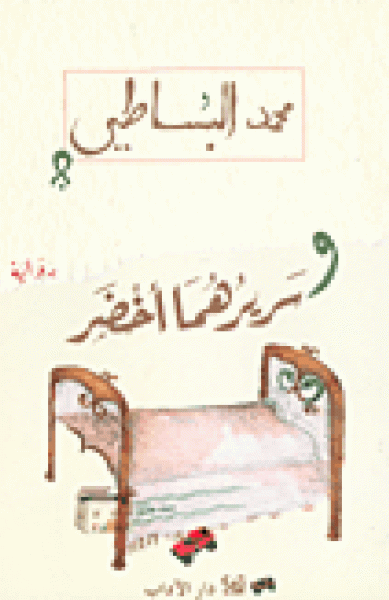 محمد البُساطي
رواية
وسَريرُهُمَا أخْضَر
دار الآداب